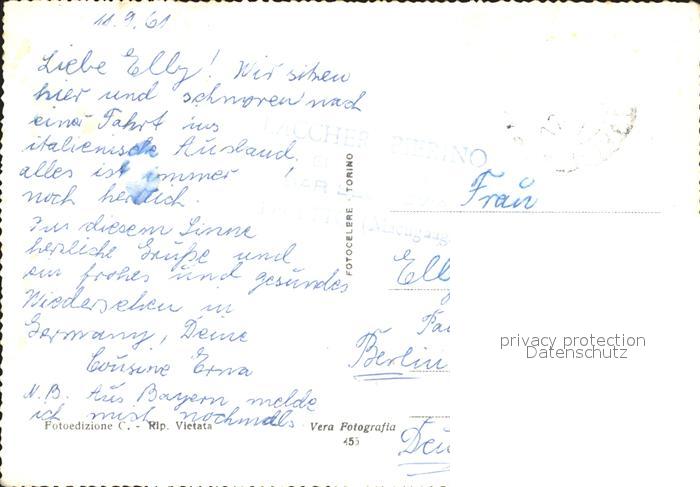 11.9.61
Liebe Elly! Wir sitzen
hier und schmoren nach
einer Fahrt ins
italienische Ausland.
alles ist immer
noch herrlich!
In diesem Sinne
herzliche Grüße und
ein frohes und gesundes
Wiedersehen in
Germany, Deine
Cousine Erna
N.B. Aus Bayern melde
ich mich nochmals
Fotoedizione C. - Rip. Vietata
Vera Fotografia
455
FOTOCELERE - TORINO
PIERINO
Frau
Ell
Berlin
Deu
privacy protection
Datenschutz